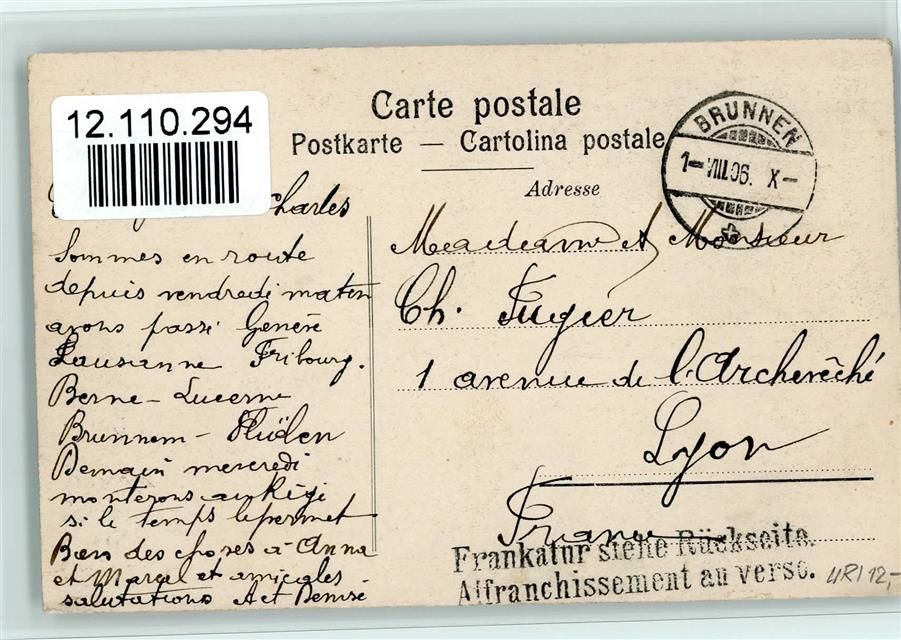 12.110.294
Carte postale
Postkarte — Cartolina postale
Adresse
BRUNNEN
1-VIII.06. X-
Charles
Sommes en route
depuis vendredi matin
avons passé Genève
Lausanne Fribourg.
Berne - Lucerne
Brunnem - Flüelen
Demain mercredi
monterons au Rigi
si le temps le permet
Bien des choses à Anna
et Marcel et amicales
salutations A et Denise
Madame et Monsieur
Ch. Fugier
1 avenue de l'Archevêché
Lyon
France
Frankatur siehe Rückseite.
Affranchissement au verso.
URI 12,-